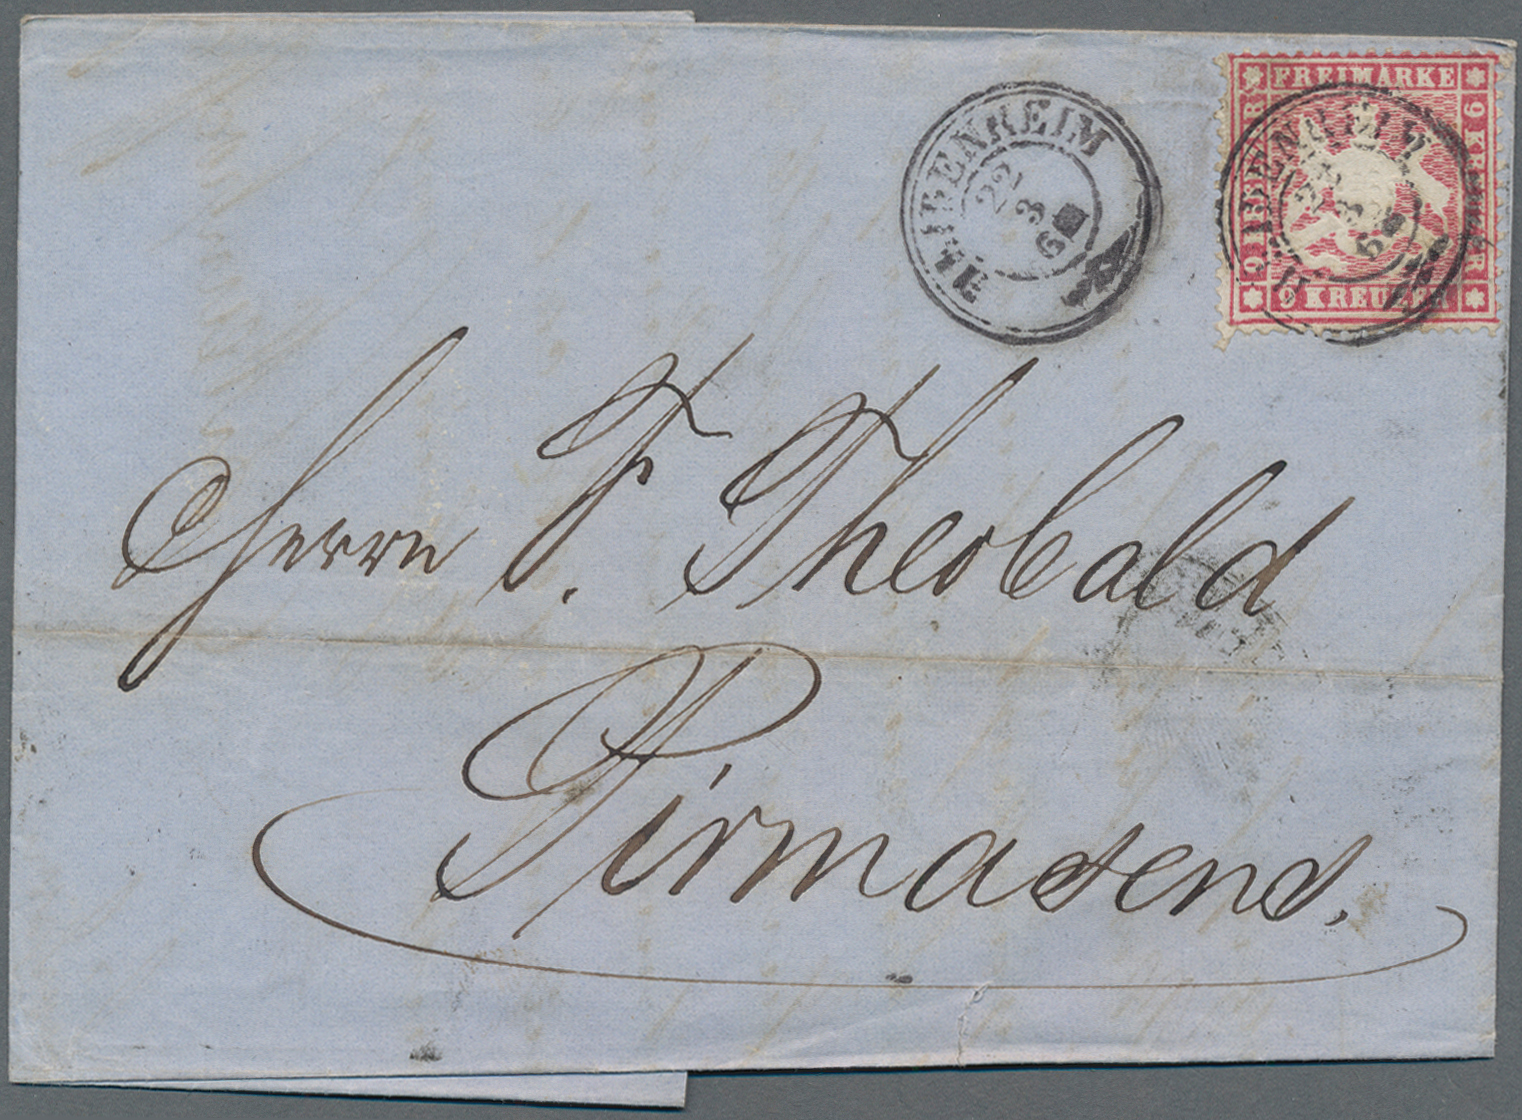 HEIDENHEIM
22
3
6
FREIMARKE
9 KREUZER
9 KREUZER
9 KREUZER
22
3
6
Herrn F. Theobald
Pirmasens.